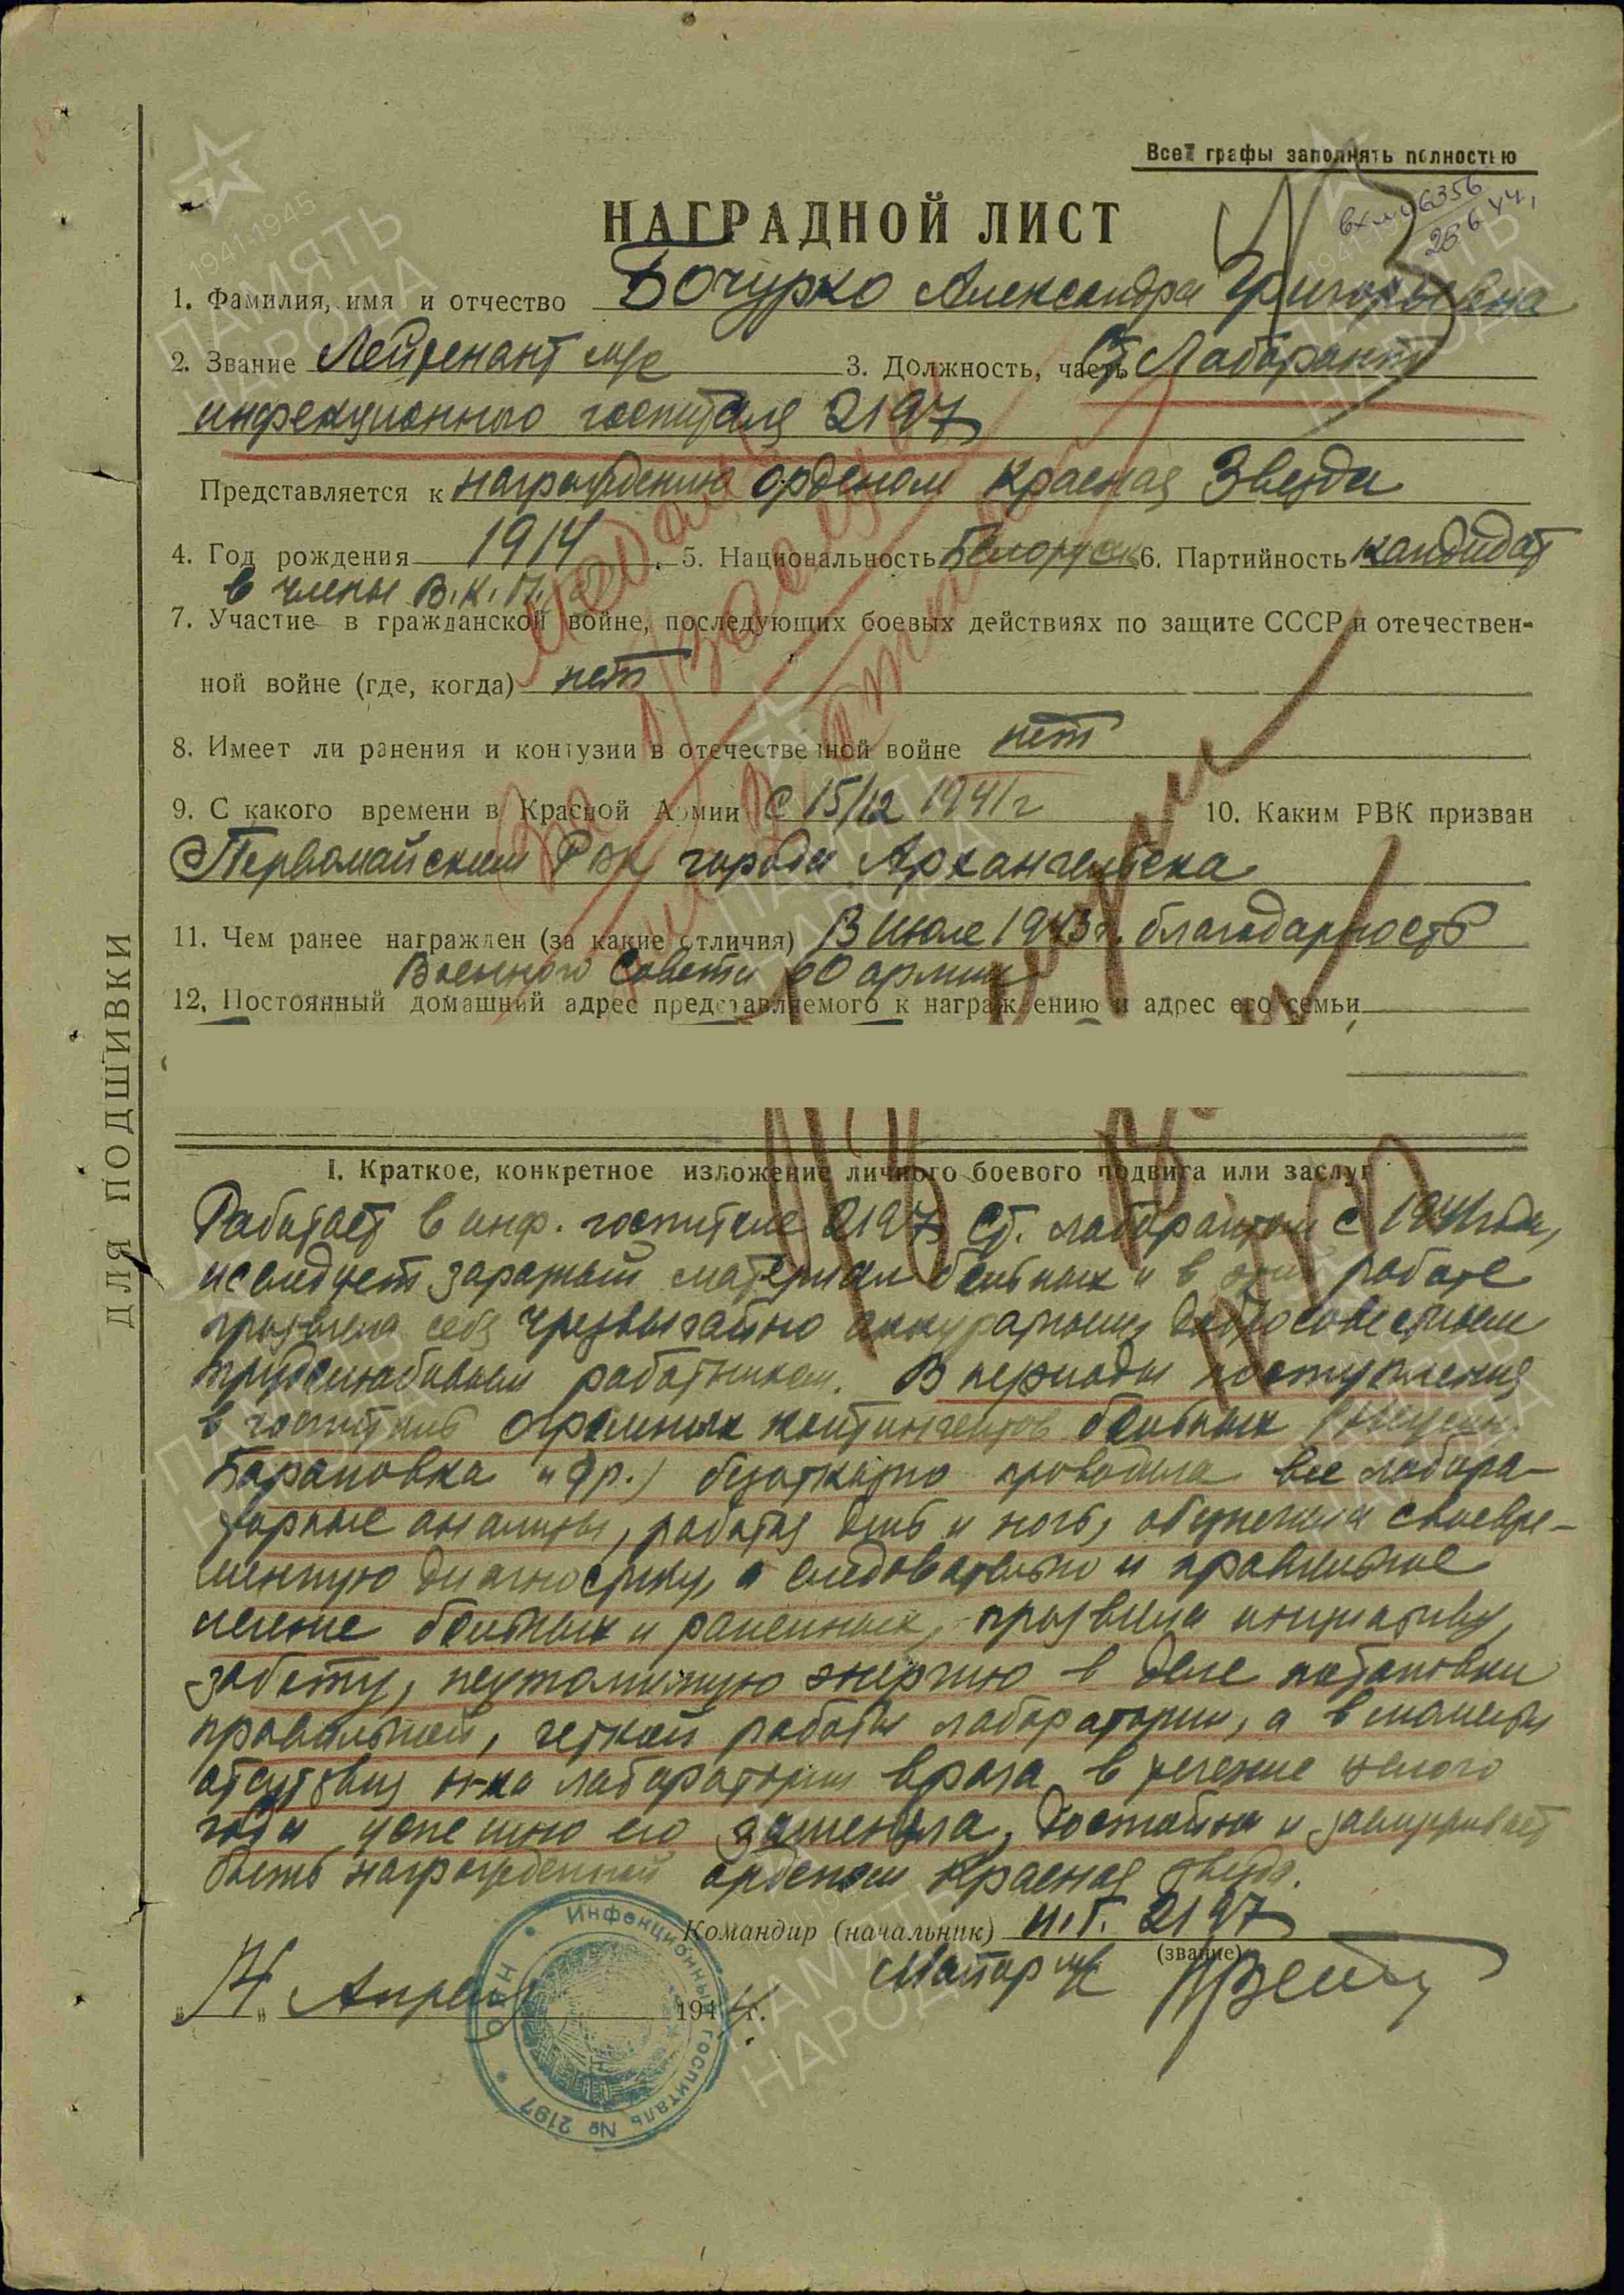 Все графы заполнять полностью
НАГРАДНОЙ ЛИСТ
1. Фамилия, имя и отчество Бочурко Александра Григорьевна
2. Звание Лейтенант м/с 3. Должность, часть Ст. Лаборант
инфекционного госпиталя 2197
Представляется к награждению орденом Красная Звезда
4. Год рождения 1914 . 5. Национальность Белоруска 6. Партийность кандидат
в члены В.К.П.
7. Участие в гражданской войне, последующих боевых действиях по защите СССР и отечествен-
ной войне (где, когда) нет
8. Имеет ли ранения и контузии в отечественной войне нет
9. С какого времени в Красной Армии С 15/12 1941 г 10. Каким РВК призван
Первомайским РВК города Архангельска
11. Чем ранее награжден (за какие отличия) В июле 1943 г. благодарность
Военного Совета 60 армии
12. Постоянный домашний адрес представляемого к награждению и адрес его семьи
I. Краткое, конкретное изложение личного боевого подвига или заслуг
Работает в инф. госпитале 2197 Ст. лаборантом с 1941 года,
исследует заразный материал больных и в этой работе
проявила себя чрезвычайно аккуратным, добросовестным
трудолюбивым работником. В периоды поступления
в госпиталь огромных контингентов больных
Барановка и др.) безотказно проводила все лабора-
торные анализы, работая день и ночь, обеспечила своевре-
менную диагностику, а следовательно и правильное
лечение больных и раненных, проявила инициативу,
заботу, неутомимую энергию в деле постановки
правильной, четкой работы лаборатории, а в моменты
отсутствия н-ка лаборатории врача в течение целого
года успешно его заменяла, достойна и заслуживает
быть награжденной орденом Красная звезда.
Командир (начальник) И.Г. 2197
(звание)
Майор м/с
„14„ Апреля 1944 г.
Инфекционный госпиталь № 2197
НКО
ДЛЯ ПОДШИВКИ
Медаль
За боевые
заслуги
1941-1945
ПАМЯТЬ
НАРОДА